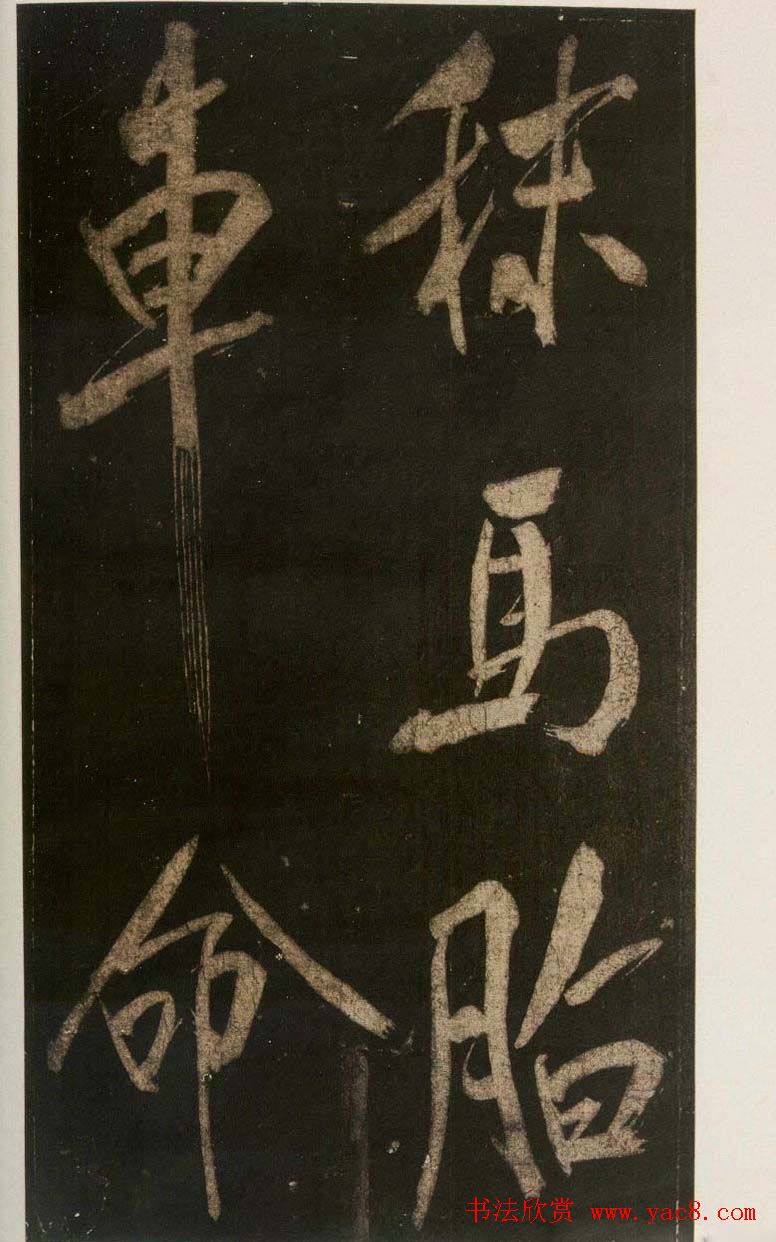 秣馬脂
車命
书法欣赏 www.yac8.com